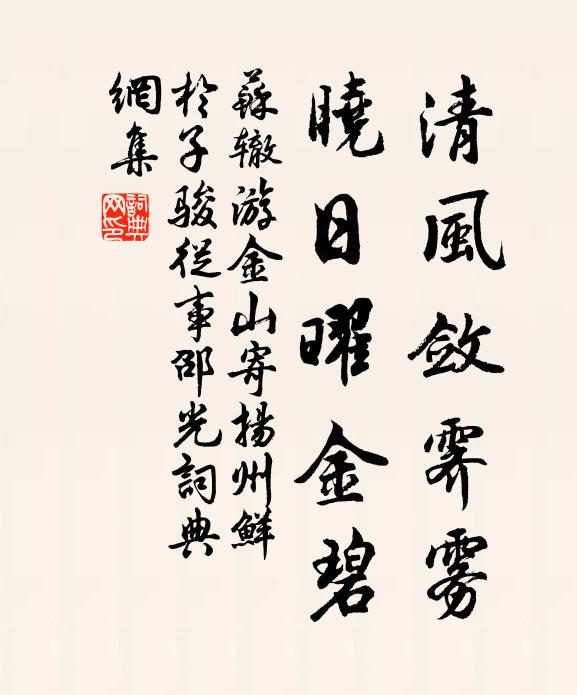 清風斂霽雰
曉日曜金碧
蘇辙游金山寄揚州鮮
於子駿從事邵光詞典
網集
詞典
网印